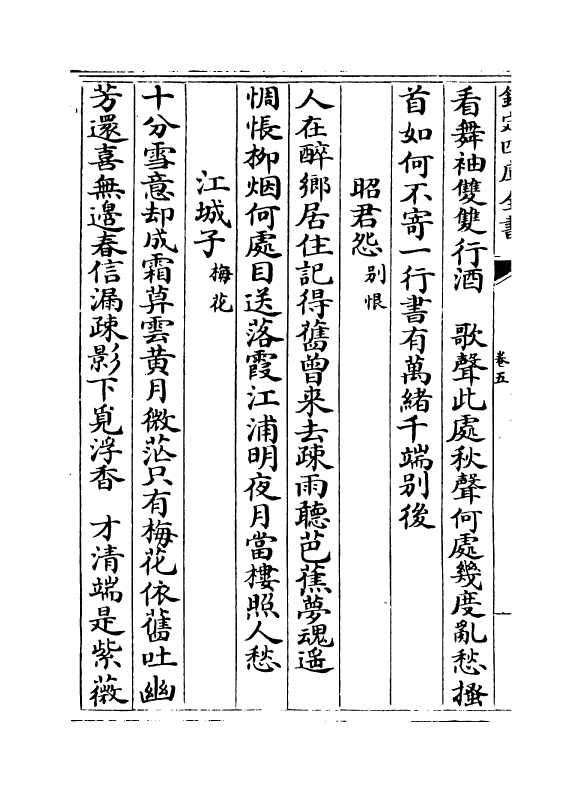 欽定四庫全書
卷五
看舞袖雙雙行酒　歌聲此處秋聲何處幾度亂愁搔
首如何不寄一行書有萬緒千端别後
昭君怨别恨
人在醉鄉居住記得舊曾来去疎雨聽芭蕉夢魂遥
惆悵栁烟何處目送落霞江浦明夜月當樓照人愁
江城子梅花
十分雪意却成霜莫雲黄月微茫只有梅花依舊吐幽
芳還喜無邊春信漏疎影下覓浮香　才清端是紫薇